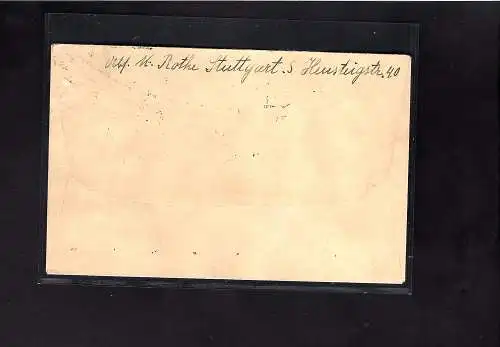 Abs. W. Rothe Stuttgart. S. Heusteigstr. 40